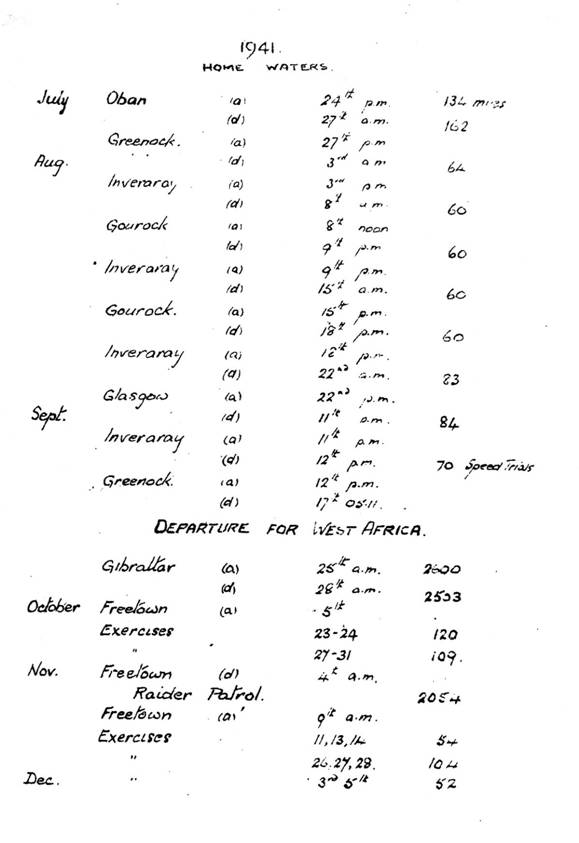 1941.
HOME WATERS.
July Oban (a) 24th p.m. 134 miles
(d) 27th a.m. 162
Greenock. (a) 27th p.m
Aug. (d) 3rd a m 64
Inveraray (a) 3rd p m
(d) 8th a.m. 60
Gourock (a) 8th noon
(d) 9th p.m 60
Inveraray (a) 9th p.m.
(d) 15th a.m. 60
Gourock. (a) 15th p.m.
(d) 18th p.m. 60
Inveraray (a) 18th p.m.
(d) 22nd a.m. 83
Glasgow (a) 22nd p.m.
Sept. (d) 11th a.m. 84
Inveraray (a) 11th p.m.
(d) 12th p.m. 70 Speed Trials
Greenock. (a) 12th p.m.
(d) 17th 05.11.
DEPARTURE FOR WEST AFRICA.
Gibraltar (a) 25th a.m. 2600
(d) 28th a.m. 2503
October Freetown (a) 5th
Exercises 23-24 120
" 27-31 109.
Nov. Freetown (d) 4th a.m.
Raider Patrol. 2054
Freetown (a) 9th a.m.
Exercises 11,13,14 54
" 26.27,28. 104
Dec. " 3rd 5th 52